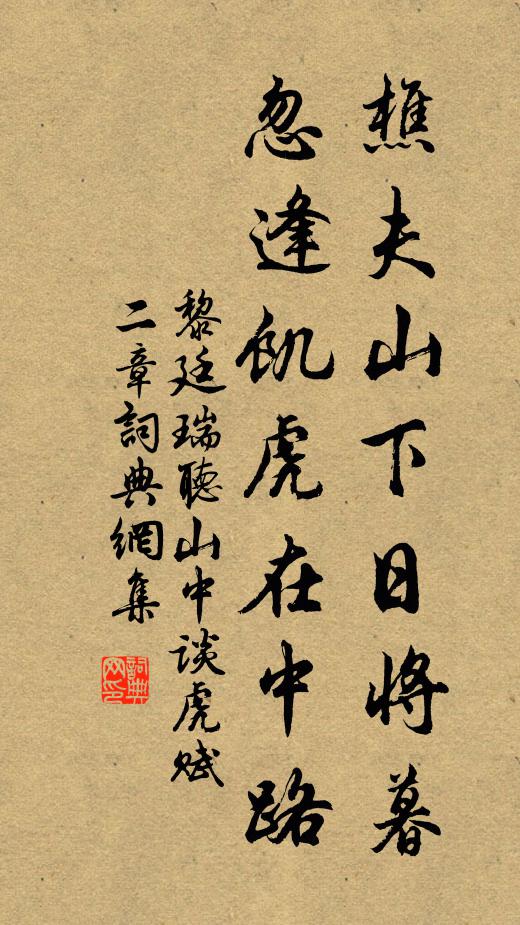 樵夫山下日將暮
忽逢飢虎在中路
黎廷瑞聽山中談虎賦
二章詞典網集
詞典
网印